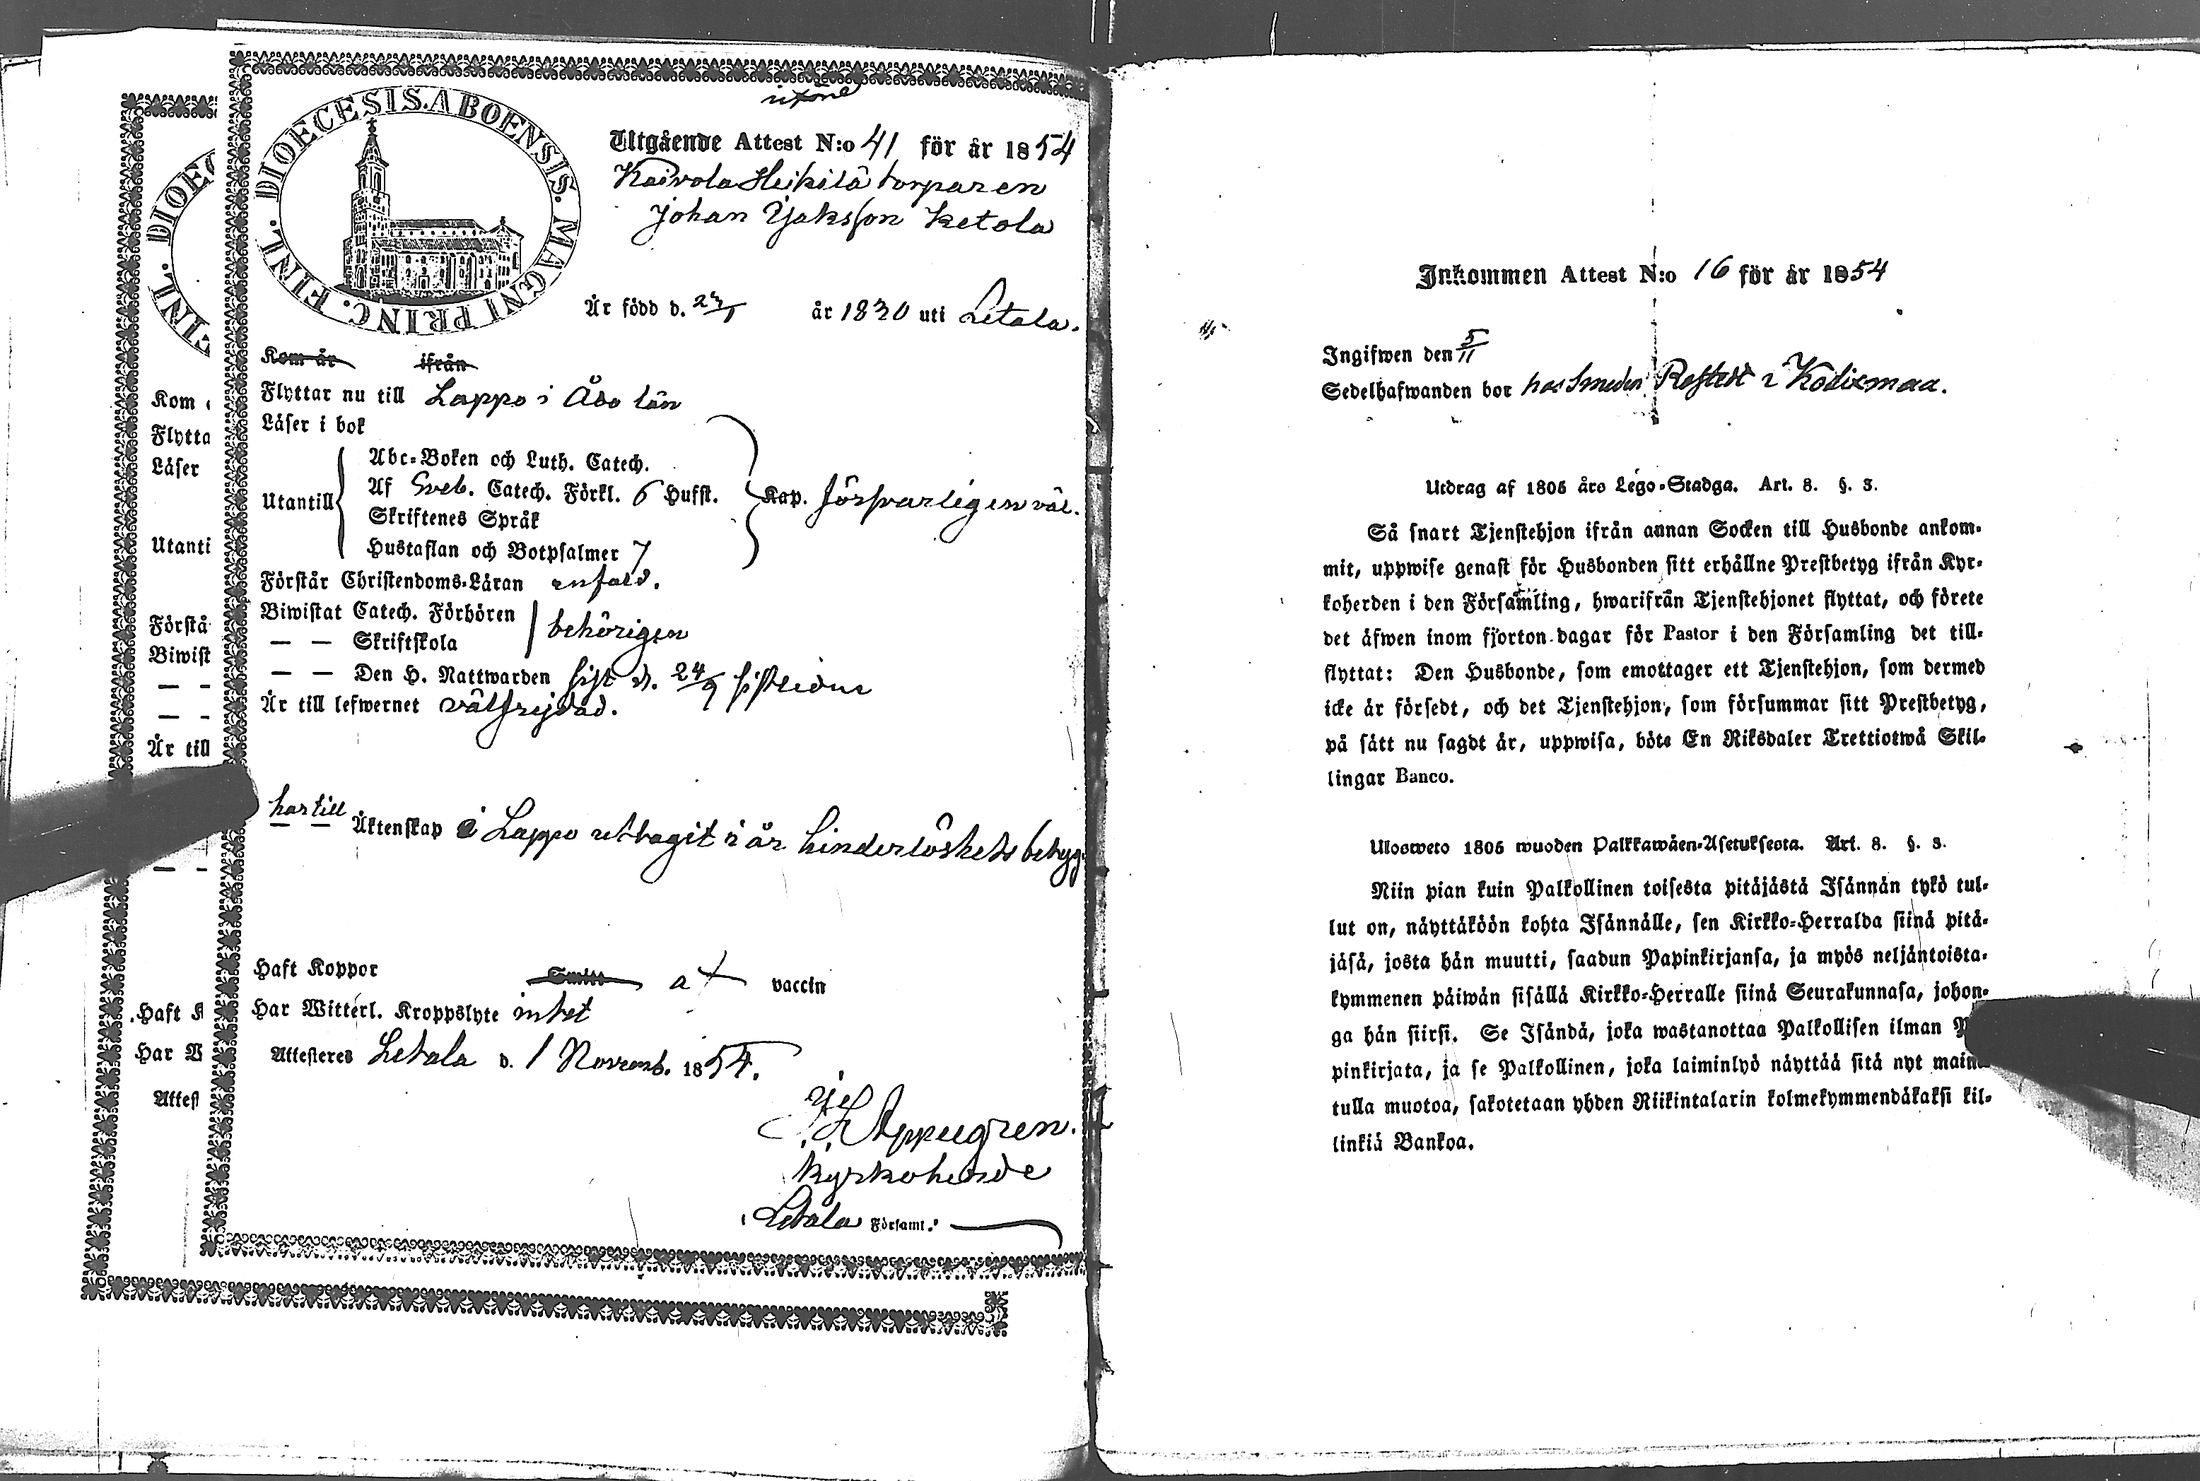 DIOECESIS. ABOENSIS. MAGNI PRINC. FINL.
Utgående Attest N:o 41 för år 1854
Kaivola Heikilä torparen
Johan Jaksson Ketola
Är född d. 27/1 år 1830 uti Letala.
Kom år ifrån
Flyttar nu till Lappo i Åbo län
Läser i bok
Abc-Boken och Luth. Catech.
Utantill Af Sveb. Catech. Förkl. 6 Hufst. Kap. försvarligen väl.
Skriftenes Språk
Hustaflan och Botpsalmer 7
Förstår Christendoms-Läran enfald.
Biwistat Catech. Förhören
— — Skriftskola behörigen
— — Den H. Nattwarden sist d. 24/9
Är till lefwernet välfrejdad.
har till
— — Äktenskap i Lappo uttagit i år hinderlöshets betyg
Haft Koppor Smitt af vaccin
Har Witterl. Kroppslyte intet
Attesteres Letala d. 1 Novemb. 1854.
Kyrkoherde
i Letala Församl.
DIOEC
FINL.
Kom
Flytta
Läser
Utanti
Förstå
Biwist
— —
— —
Är till
— —
Haft K
Har W
Attest
Inkommen Attest N:o 16 för år 1854
Ingifwen den 5/11
Sedelhafwanden bor hos Smeden i Kodixmaa.
Utdrag af 1805 års Lego-Stadga. Art. 8. §. 3.
Så snart Tjenstehjon ifrån annan Socken till Husbonde ankom-
mit, uppwise genast för Husbonden sitt erhållne Prestbetyg ifrån Kyr-
koherden i den Församling, hwarifrån Tjenstehjonet flyttat, och förete
det äfwen inom fjorton dagar för Pastor i den Församling det till-
flyttat: Den Husbonde, som emottager ett Tjenstehjon, som dermed
icke är försedt, och det Tjenstehjon, som försummar sitt Prestbetyg,
på sätt nu sagdt är, uppwisa, böte En Riksdaler Trettiotwå Skil-
lingar Banco.
Uloosweto 1805 wuoden Palkkawäen-Asetuksesta. Art. 8. §. 3.
Niin pian kuin Palkollinen toisesta pitäjästä Isännän tykö tul-
lut on, näyttäköön kohta Isännälle, sen Kirkko-Herralda siinä pitä-
jäsä, josta hän muutti, saadun Papinkirjansa, ja myös neljäntoista-
kymmenen päiwän sisällä Kirkko-Herralle siinä Seurakunnasa, johon-
ga hän siirsi. Se Isändä, joka wastanottaa Palkollisen ilman P
pinkirjata, ja se Palkollinen, joka laiminlyö näyttää sitä nyt maini
tulla muotoa, sakotetaan yhden Riikintalarin kolmekymmendäkaksi kil-
linkiä Bankoa.